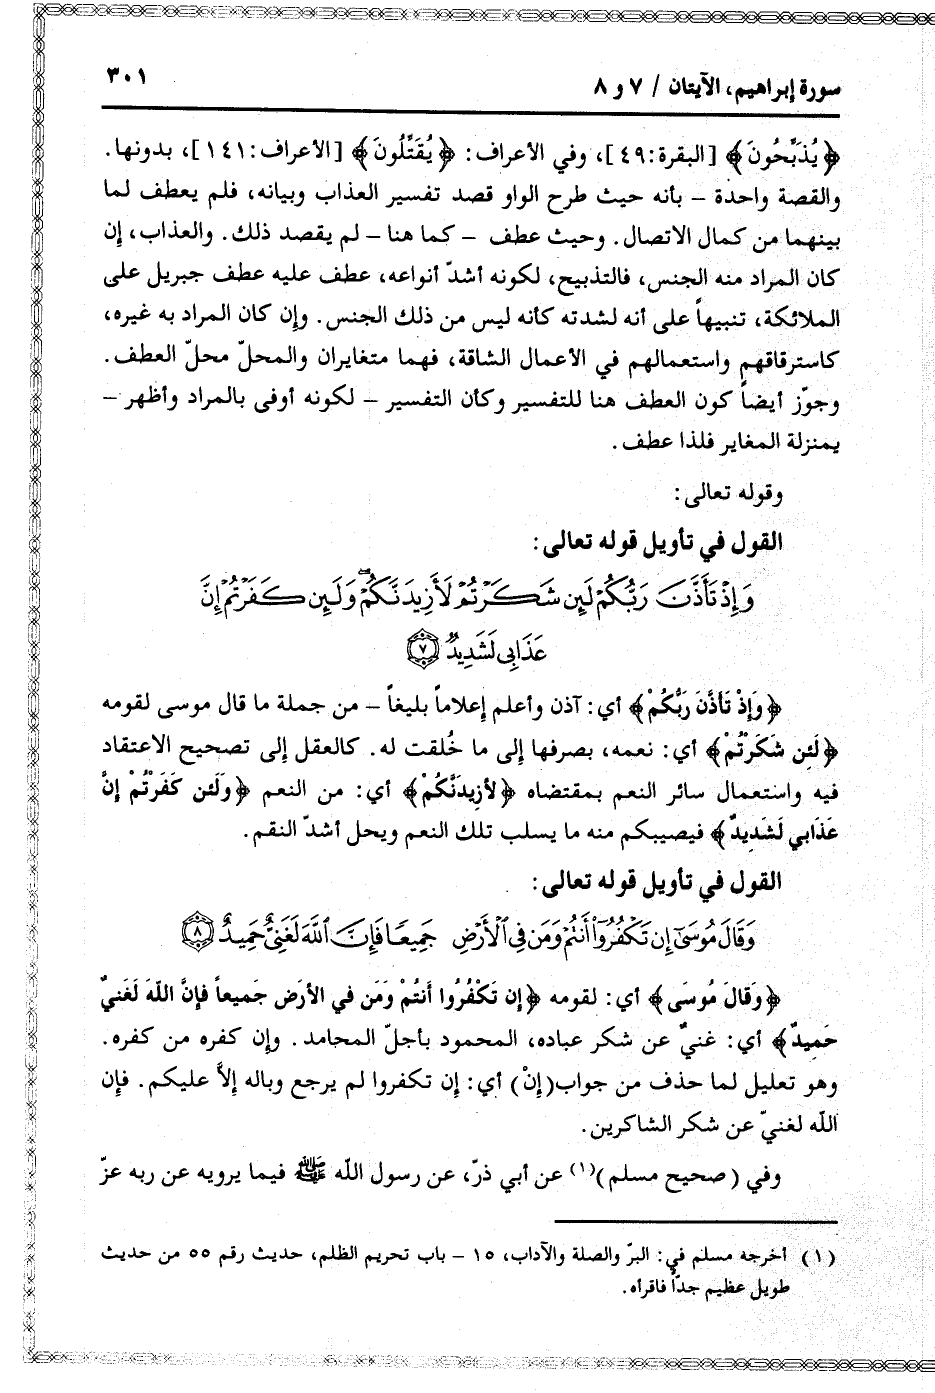 سورة إبراهيم، الآيتان / ٧ و ٨
٣٠١
﴿يُذَبِّحُونَ﴾ [البقرة:٤٩]، وفي الأعراف: ﴿يُقَتِّلُونَ﴾ [الأعراف:١٤١]، بدونها.
والقصة واحدة – بأنه حيث طرح الواو قصد تفسير العذاب وبيانه، فلم يعطف لما
بينهما من كمال الاتصال. وحيث عطف – كما هنا – لم يقصد ذلك. والعذاب، إن
كان المراد منه الجنس، فالتذبيح، لكونه أشدّ أنواعه، عطف عليه عطف جبريل على
الملائكة، تنبيهاً على أنه لشدته كأنه ليس من ذلك الجنس. وإن كان المراد به غيره،
كاسترقاقهم واستعمالهم في الأعمال الشاقة، فهما متغايران والمحلّ محلّ العطف.
وجوّز أيضاً كون العطف هنا للتفسير وكأن التفسير – لكونه أوفى بالمراد وأظهر –
بمنزلة المغاير فلذا عطف.
وقوله تعالى:
القول في تأويل قوله تعالى:
وَإِذْ تَأَذَّنَ رَبُّكُمْ لَئِن شَكَرْتُمْ لَأَزِيدَنَّكُمْ ۖ وَلَئِن كَفَرْتُمْ إِنَّ
عَذَابِي لَشَدِيدٌ ٧
﴿وَإِذْ تَأَذَّنَ رَبُّكُمْ﴾ أي: آذن وأعلم إعلاماً بليغاً – من جملة ما قال موسى لقومه
﴿لَئِن شَكَرْتُمْ﴾ أي: نعمه، بصرفها إلى ما خُلقت له. كالعقل إلى تصحيح الاعتقاد
فيه واستعمال سائر النعم بمقتضاه ﴿لأزِيدَنَّكُمْ﴾ أي: من النعم ﴿وَلَئن كَفَرْتُمْ إنَّ
عَذَابي لَشَدِيدٌ﴾ فيصيبكم منه ما يسلب تلك النعم ويحل أشدّ النقم.
القول في تأويل قوله تعالى:
وَقَالَ مُوسَىٰٓ إِن تَكْفُرُوٓا۟ أَنتُمْ وَمَن فِي ٱلْأَرْضِ جَمِيعًا فَإِنَّ ٱللَّهَ لَغَنِيٌّ حَمِيدٌ ٨
﴿وَقالَ مُوسَى﴾ أي: لقومه ﴿إن تَكْفُرُوا أَنتُمْ وَمَن في الأرَضِ جَميعاً فَإنَّ اللهَ لَغنيٌ
حَمِيدٌ﴾ أي: غنيٌ عن شكر عباده، المحمود بأجلّ المحامد. وإن كفره من كفره.
وهو تعليل لما حذف من جواب(إنْ) أي: إن تكفروا لم يرجع وباله إلاَّ عليكم. فإن
الله لغنيّ عن شكر الشاكرين.
وفي (صحيح مسلم)(١) عن أبي ذرّ، عن رسول الله ﷺ فيما يرويه عن ربه عزّ
(١) أخرجه مسلم في: البرّ والصلة والآداب، ١٥ – باب تحريم الظلم، حديث رقم ٥٥ من حديث
طويل عظيم جدّاً فاقرأه.